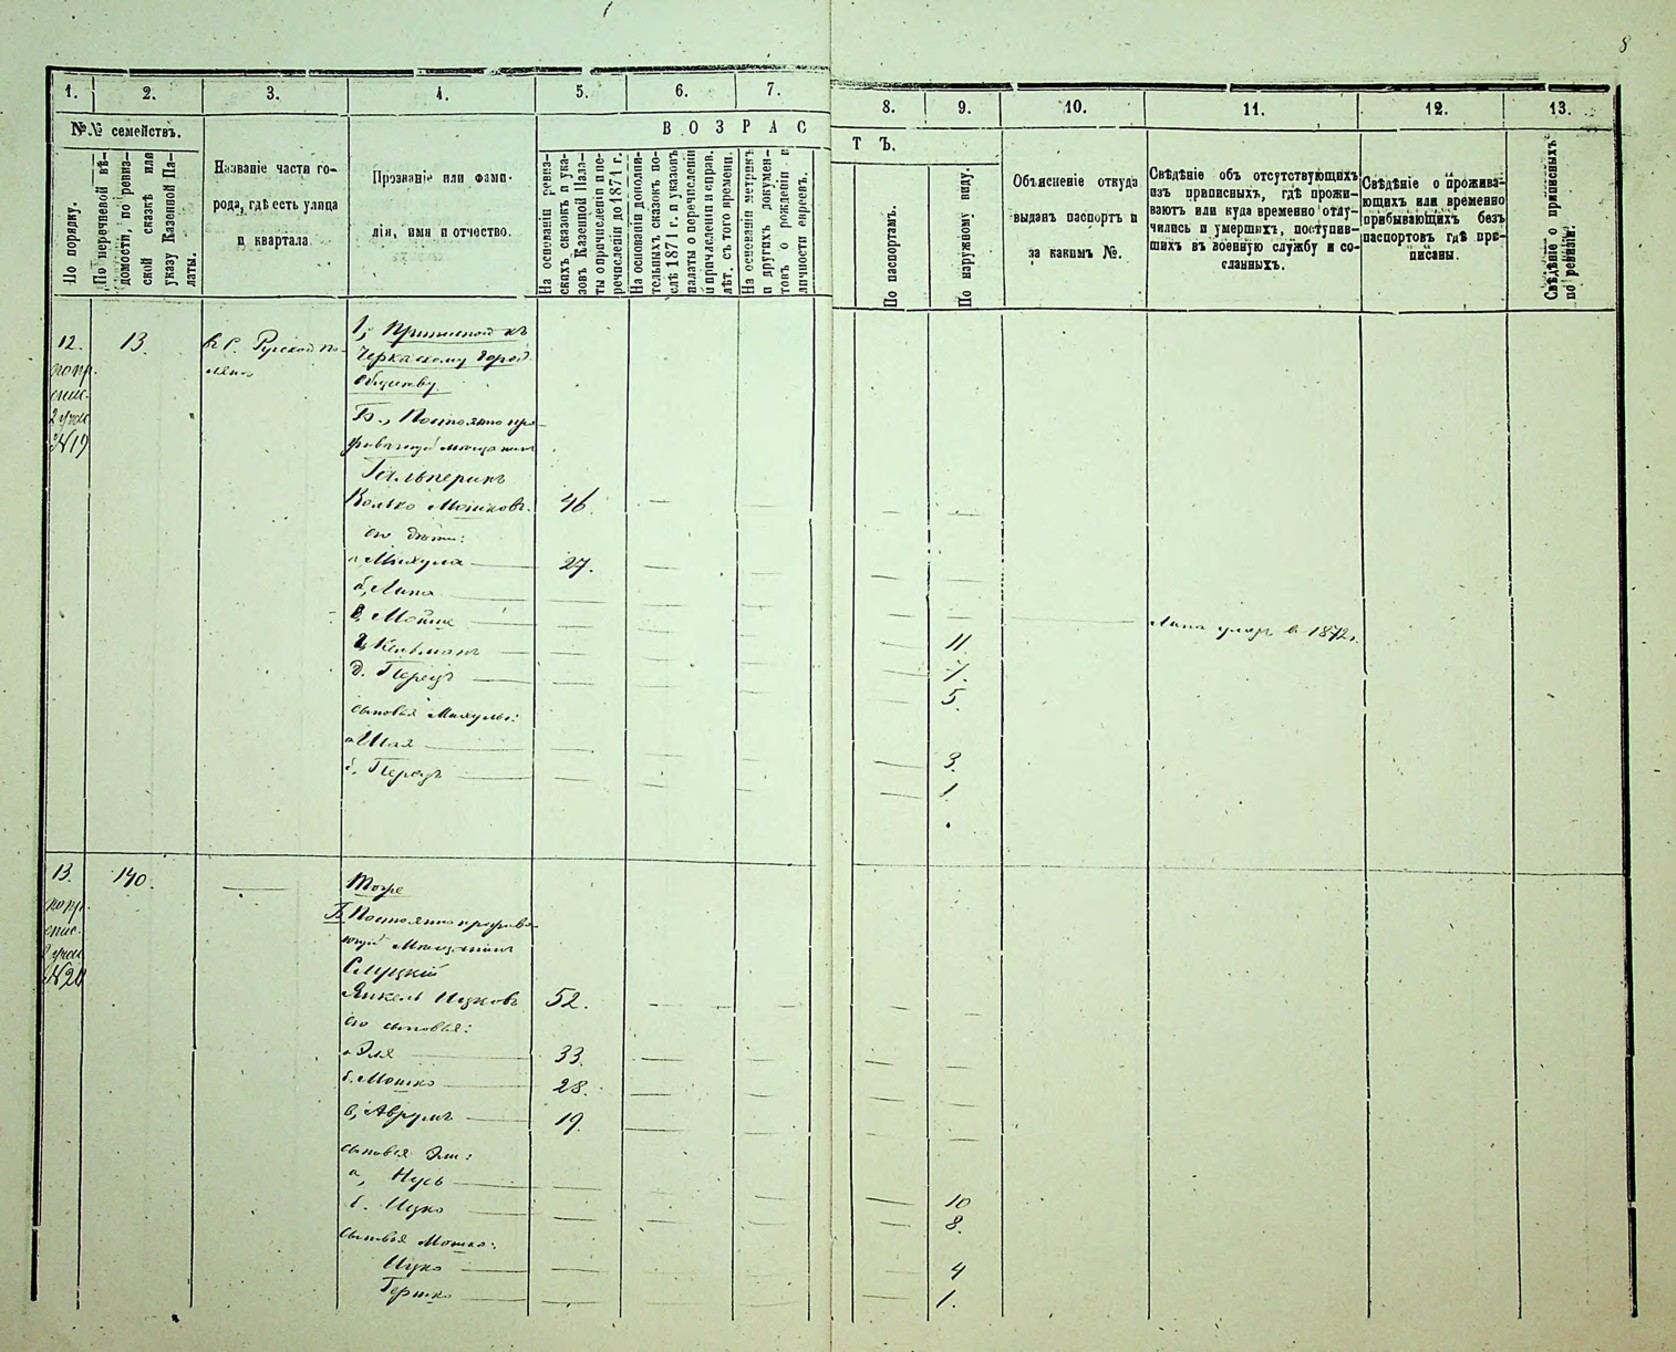 8
1.
2.
3.
4.
5.
6.
7.
8.
9.
10.
11.
12.
13.
№№ семействъ.
По порядку.
По перечневой вѣ-
домости, по ревиз-
ской сказкѣ или
указу Казенной Па-
латы.
Названіе части го-
рода, гдѣ есть улица
и квартала
Прозваніе или фами-
лія, имя и отчество.
ВОЗРАСТЪ.
На основаніи ревиз-
скихъ сказокъ и ука-
зовъ Казенной Пала-
ты о причисленіи и пе-
речисленіи до 1871 г.
На основаніи дополни-
тельныхъ сказокъ по-
слѣ 1871 г. и указовъ
палаты о перечисленіи
и причисленіи и справ.
лѣт. съ того времени.
На основаніи метрикъ
и другихъ докумен-
товъ о рожденіи и
личности евреевъ.
По паспортамъ.
По наружному виду.
Объясненіе откуда
выданъ паспортъ и
за какимъ №.
Свѣдѣніе объ отсутствующихъ
изъ приписныхъ, гдѣ прожи-
ваютъ или куда временно отлу-
чились и умершихъ, поступив-
шихъ въ военную службу и со-
сланныхъ.
Свѣдѣніе о прожива-
ющихъ или временно
прибывающихъ безъ
паспортовъ гдѣ при-
писаны.
Свѣдѣніе о приписныхъ
по ревизіи.
12.
13.
2 учас
№19
1, Приписной къ
Черкаскому Город.
Обществу
Б., Постоянно про-
живающій мещанинъ
Гальперинъ
Волько Мошковъ.
46.
его дѣти:
а Михула
27.
б, Липа
Липа умеръ в 1872г.
в, Мойше
11
г, Кельманъ
7.
д. Перецъ
5.
сыновья Михулы:
а Шая
3.
б, Перецъ
1
13.
140.
№20
Тоже
Б Постоянно прожива-
ющій Мещанинъ
Слуцкій
Янкель Ицковъ
52.
его сыновья:
а Эля
33.
б. Мошко
28.
в, Аврумъ
19.
сыновья Эли:
а, Нусь
10
б. Ицко
8.
сыновья Мошка:
Ицко
4
Гершко
1.